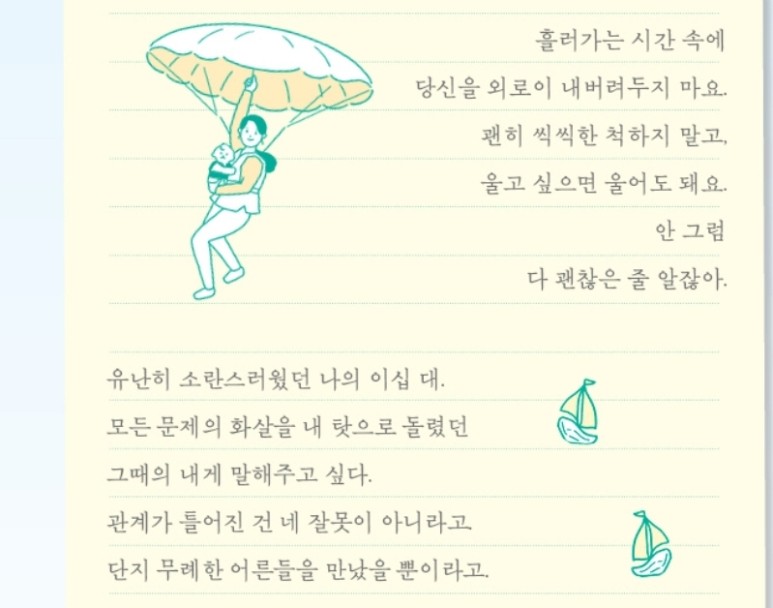 흘러가는 시간 속에
당신을 외로이 내버려두지 마요.
괜히 씩씩한 척하지 말고,
울고 싶으면 울어도 돼요.
안 그럼
다 괜찮은 줄 알잖아.
유난히 소란스러웠던 나의 이십 대.
모든 문제의 화살을 내 탓으로 돌렸던
그때의 내게 말해주고 싶다.
관계가 틀어진 건 네 잘못이 아니라고.
단지 무례한 어른들을 만났을 뿐이라고.